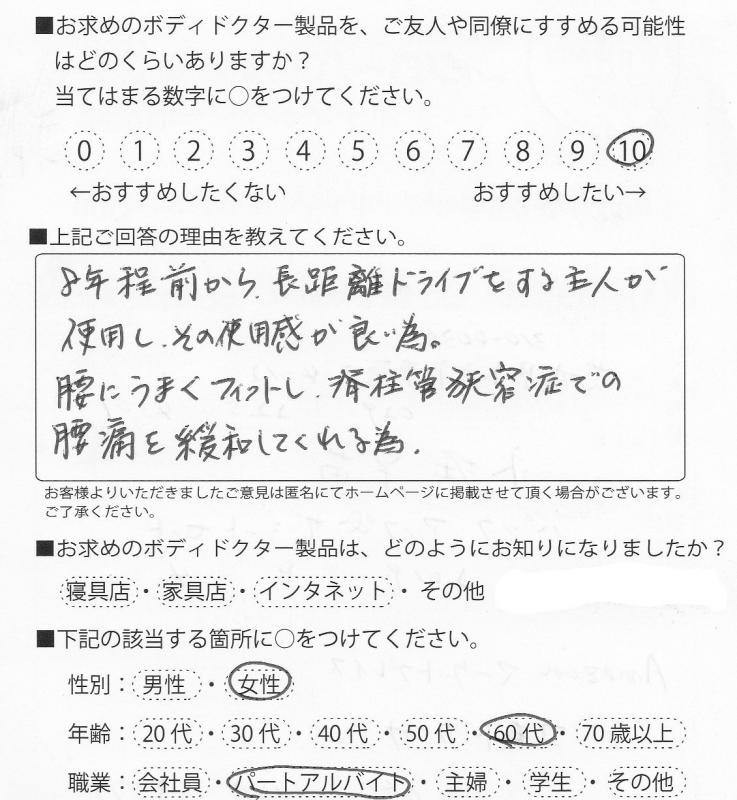 ■お求めのボディドクター製品を、ご友人や同僚にすすめる可能性
はどのくらいありますか？
当てはまる数字に○をつけてください。
0 1 2 3 4 5 6 7 8 9 10
←おすすめしたくない おすすめしたい→
■上記ご回答の理由を教えてください。
8年程前から、長距離ドライブをする主人が
使用し、その使用感が良い為。
腰にうまくフィットし、脊柱管狭窄症での
腰痛を緩和してくれる為。
お客様よりいただきましたご意見は匿名にてホームページに掲載させて頂く場合がございます。
ご了承ください。
■お求めのボディドクター製品は、どのようにお知りになりましたか？
寝具店・家具店・インタネット・その他
■下記の該当する箇所に○をつけてください。
性別：男性・女性
年齢：20代・30代・40代・50代・60代・70歳以上
職業：会社員・パートアルバイト・主婦・学生・その他